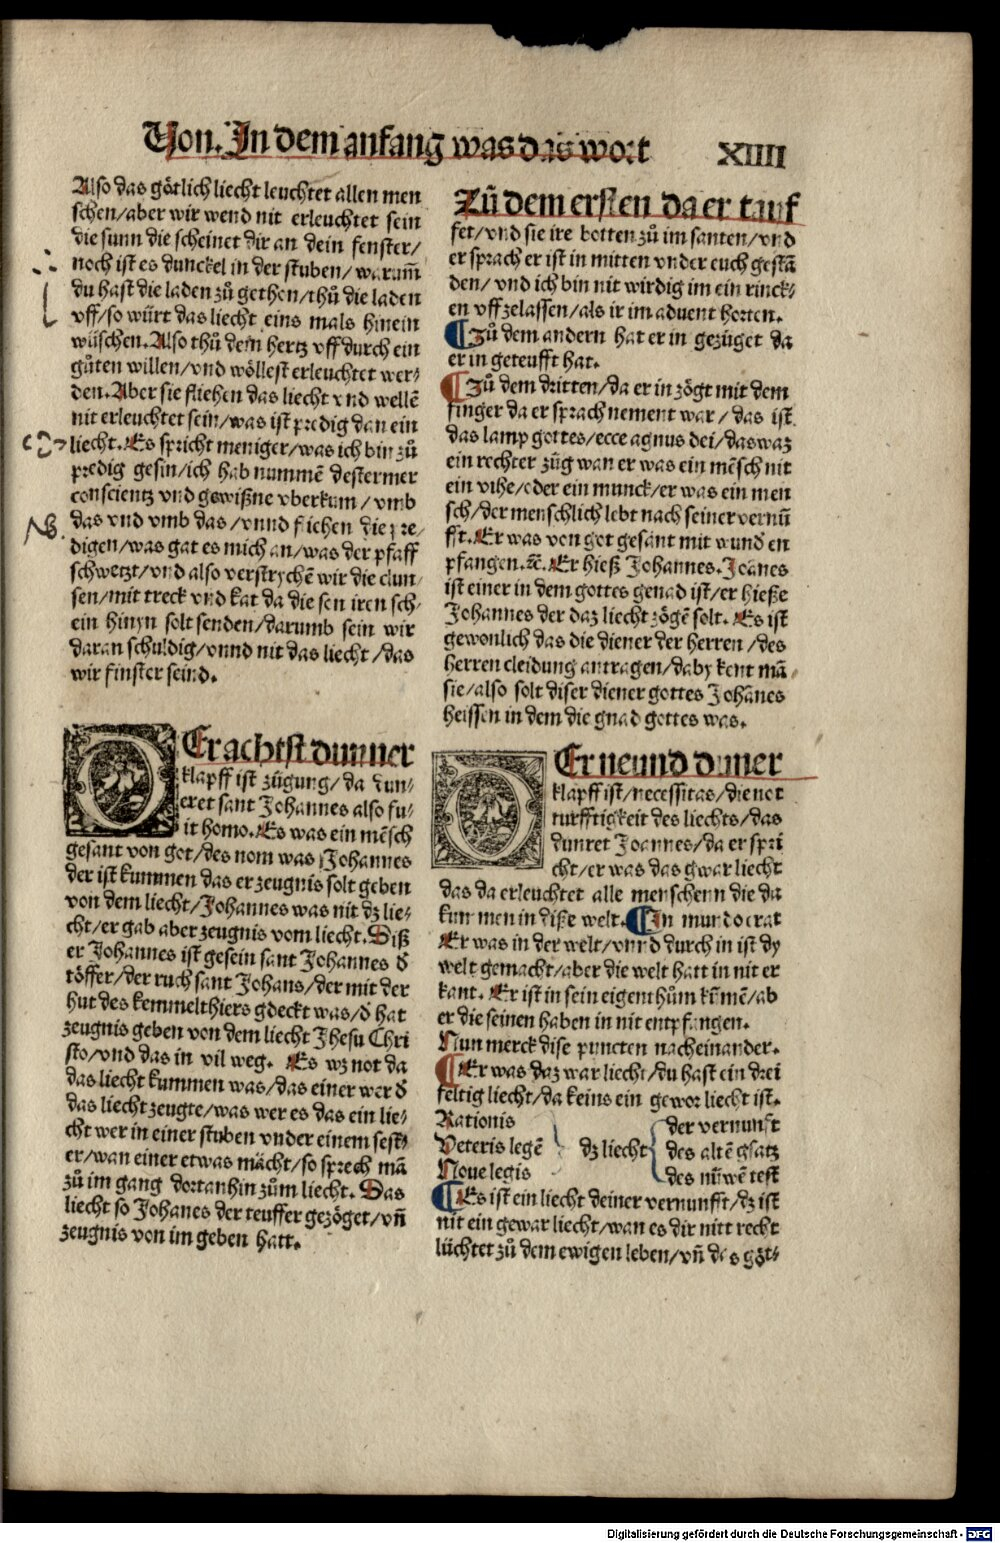 Von. In dem anfang was das wort XIIII
Also das götlich liecht leuchtet allen men
schen/aber wir wend nit erleuchtet sein
die sunn die scheinet dir an dein fenster/
noch ist es dunckel in der stuben/warum̃
du hast die laden zů gethon/thů die laden
vff/so würt das liecht eins mals hinein
wüschen. Also thů dein hertz vff durch ein
gůten willen/vnd wöllest erleuchtet wer⸗
den. Aber sie fliehen das liecht vnd wellē
nit erleuchtet sein/was ist predig dan ein
liecht. Es spricht meniger/was ich bin zů
predig gesin/ich hab nummē destermer
conscientz vnd gewißne vberkum/vmb
das vnd vmb das/vnnd fliehen die pre/
digen/was gat es mich an/was der pfaff
schwetzt/vnd also verstrychē wir die clun/
sen/mit treck vnd kat da die son iren sch/
ein hinyn solt senden/darumb sein wir
daran schuldig/vnnd nit das liecht/das
wir finster seind.
DEr achtst dunner
klapff ist zügung/da dun⸗
eret sant Johannes also fu⸗
it homo. Es was ein mēsch
gesant von got/des nom was Johannes
der ist kummen das er zeugnis solt geben
von dem liecht/Johannes was nit dz lie⸗
cht/er gab aber zeugnis vom liecht. Diß
er Johannes ist gesein sant Johannes d̄
töffer/der ruch sant Johans/der mit der
hut des kemmelthiers gdeckt was/d̄ hat
zeugnis geben von dem liecht Jhesu Chri
sto/vnd das in vil weg. Es wz not da
das liecht kummen was/das einer wer d̄
das liecht zeugte/was wer es das ein lie⸗
cht wer in einer stuben vnder einem sest⸗
er/wan einer etwas mācht/so sprech mā
zů im gang dortanhin zům liecht. Das
liecht so Johanes der teuffer gezöget/vñ
zeugnis von im geben hatt.
Zů dem ersten da er tauf
fet/vnd sie ire botten zů im santen/vnd
er sprach er ist in mitten vnder euch gestā
den/vnd ich bin nit wirdig im ein rinck⸗
en vff zelassen/als ir im aduent horten.
¶ Zů dem andern hat er in gezüget da
er in geteufft hat.
¶ Zů dem dritten/da er in zögt mit dem
finger da er sprach nement war/das ist
das lamp gottes/ecce agnus dei/das waz
ein rechter züg wan er was ein mēsch nit
ein vihe/oder ein munck/er was ein men
sch/der menschlich lebt nach seiner vernū
fft. Er was von got gesant mit wunden
pfangen. ⁊c. Er hieß Johannes. Joānes
ist einer in dem gottes genad ist/er hieße
Johannes der daz liecht zögē solt. Es ist
gewonlich das die diener der herren/des
herren cleidung antragen/daby kent mā
sie/also solt diser diener gottes Johānes
heissen in dem die gnad gottes was.
DEr neund dunner
klapff ist/necessitas/die not
turfftigkeit des liechts/das
dunret Joannes/da er spri
cht/er was das gwar liecht
das da erleuchtet alle menschenn die da
kummen in diße welt. ¶ In mundo erat
Er was in der welt/vnnd durch in ist dy
welt gemacht/aber die welt hatt in nit er
kant. Er ist in sein eigenthům kūmē/ab
er die seinen haben in nit entpfangen.
Nun merck dise puncten nacheinander.
¶ Er was daz war liecht/du hast ein drei
feltig liecht/da keins ein gewor liecht ist.
Rationis der vernunft
Veteris legē dz liecht des altē gsatz
Noue legis des nůwē test
¶ Es ist ein liecht deiner vernunfft/dz ist
nit ein gewar liecht/wan es dir nitt recht
lüchtet zů dem ewigen leben/vñ des göt⸗
NB.
Digitalisierung gefördert durch die Deutsche Forschungsgemeinschaft - DFG